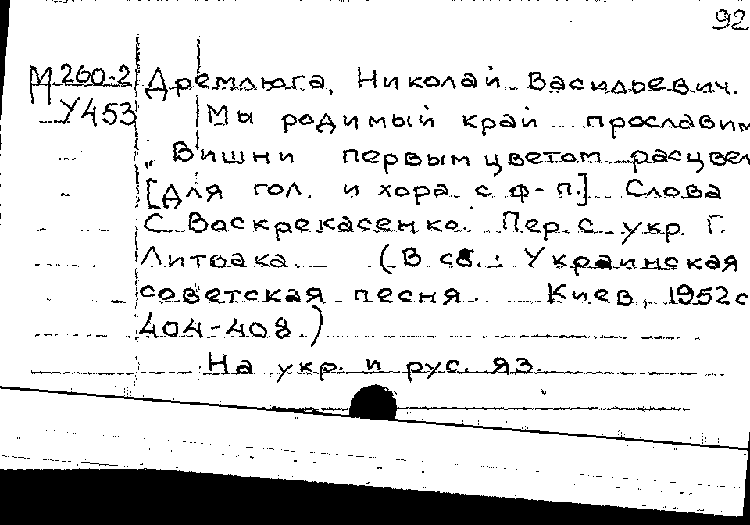 92
М 260-2 Дремлюга, Николай Васильевич.
У453 Мы родимый край прославим
„Вишни первым цветом расцвел
[Для гол. и хора с ф-п.] Слова
С Воскрекасенко. Пер. с укр. Г.
Литвака. (В сб.: Украинская
советская песня. Киев, 1952 с
404-408.)
На укр. и рус. яз.